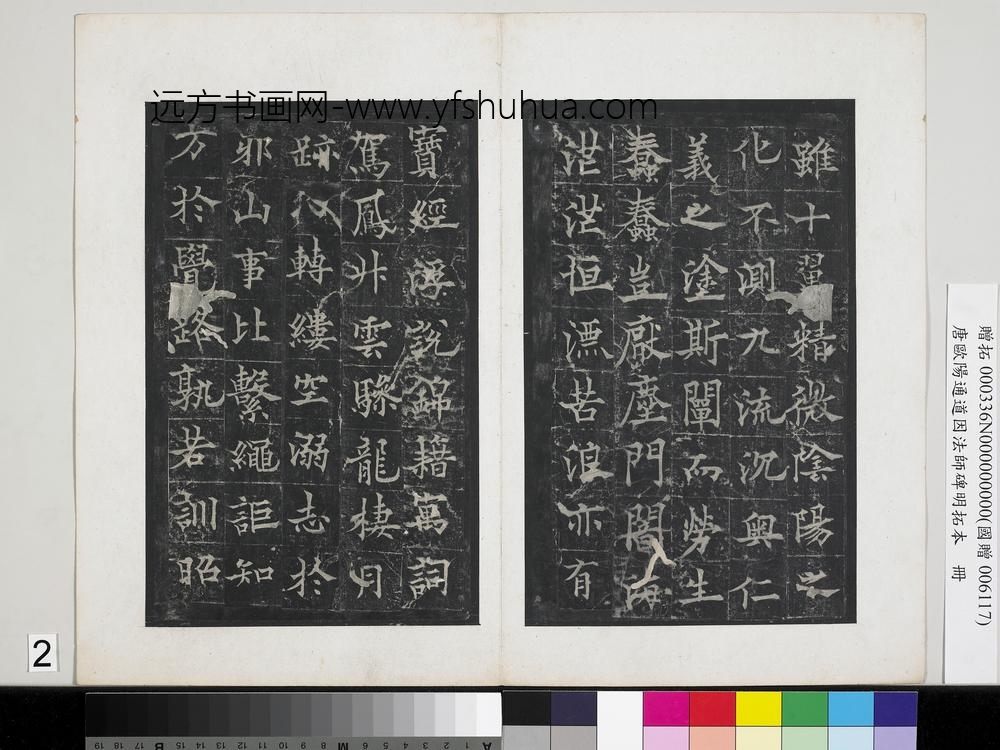 远方书画网-www.yfshuhua.com
雖十翼精微陰陽之
化不測九流沉奥仁
義之塗斯闡而勞生
蠢蠢豈厭塵門闇海
茫茫恒漂苦浪亦有
寶經浮說錦籍寓詞
駕鳳升雲驂龍棲月
跡轉縷空溺志於
邪山事比繫繩詎知
方於覺路孰若訓昭
贈拓 000336N000000000(國贈 006117)
唐歐陽通道因法師碑明拓本 冊
2
19 18 17 16 15 14 13 12 11 10 9 8 7 6 5 4 3 2 1
B M A